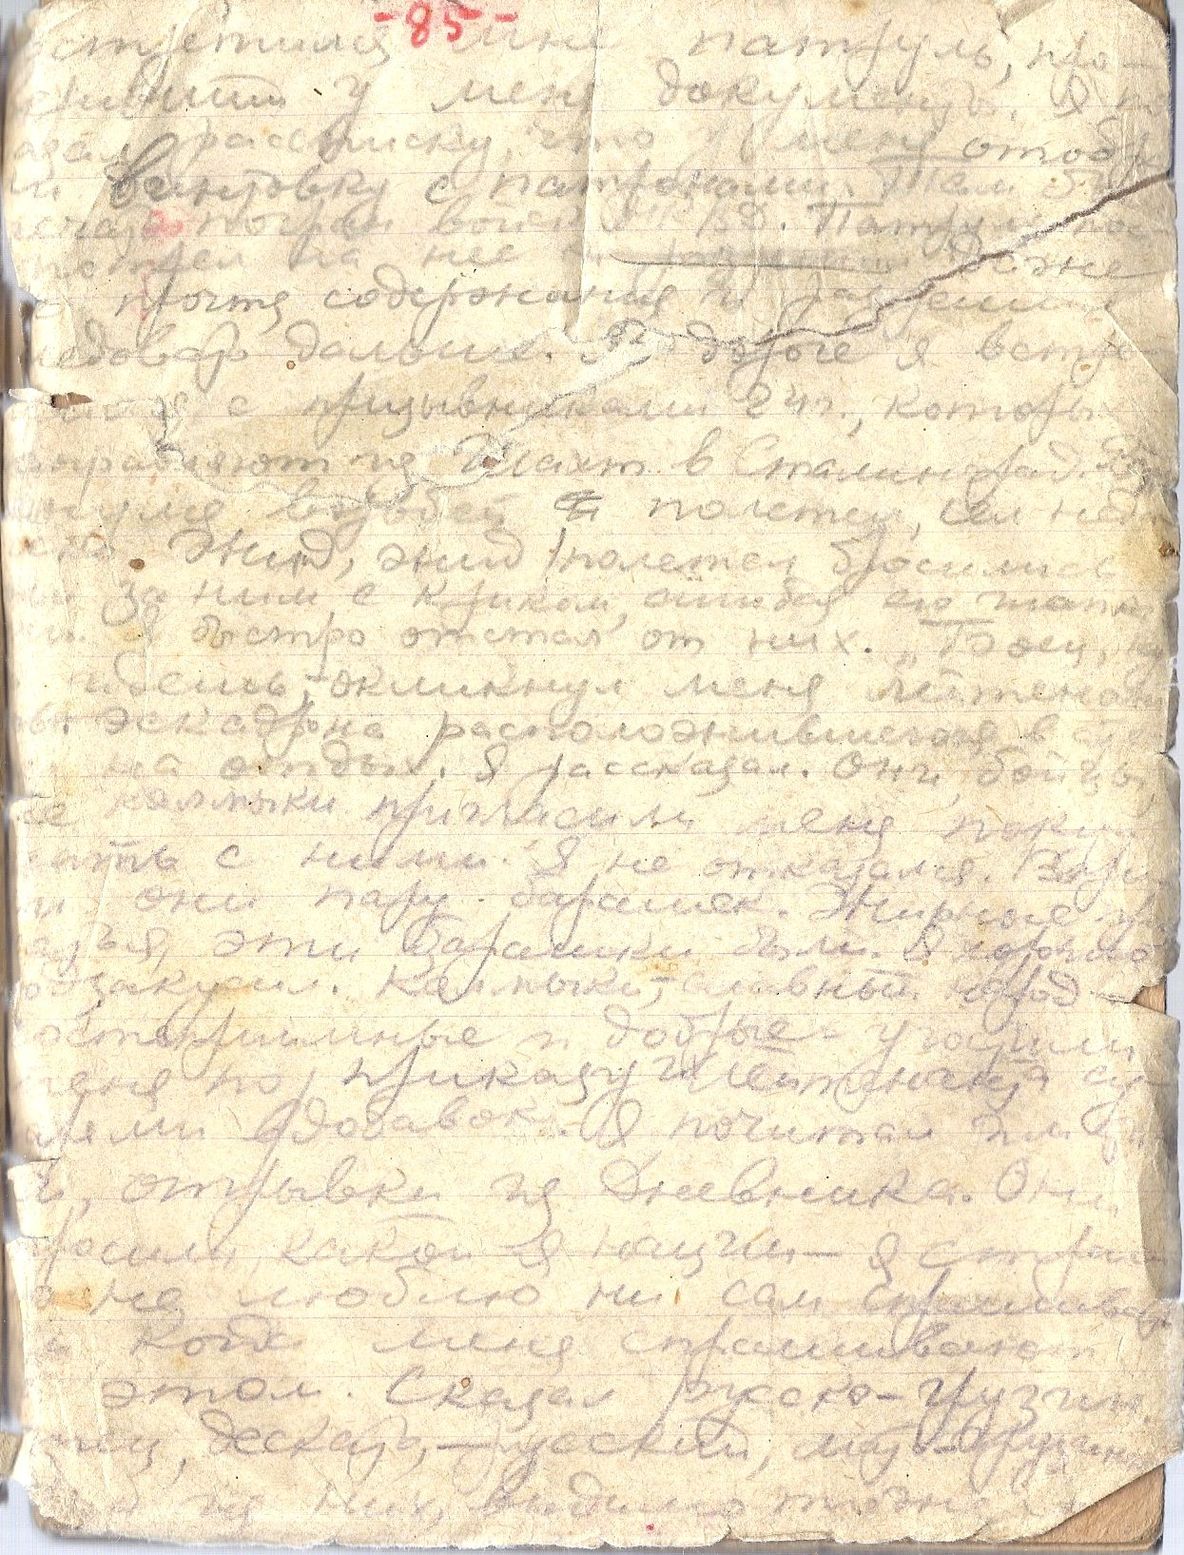 -85-
встретился мне патруль, про-
сивший у меня документы. Я по-
казал расписку, что у меня отобра
ли винтовку с патронами. Там был
печать погран войск НКВД. Патруль пос
мотрел на нее и даже
не прочтя содержания и разрешил
следовать дальше. По дороге я встре
тился с призывниками 24 г., которых
направляют из Шахт в Сталинград.
воробей и полетел, сел недо
леко. Жид, жид полетел бросились
они за ним с криком, сшибая его шапка
ми. Я быстро отстал от них. "Боец,
- окликнул меня лейтенант
эскадрона расположившегося в сте
на отдых. Я рассказал. Они, бойцы,
все калмыки пригласили меня поку
шать с ними. Я не отказался. Вари
ли они пару барашек. Жирные
эти барашки были. Я хорошо
закусил. Калмыки, - славный народ -
гостеприимные и добрые - угостили
меня по приказу лейтенанта су
харями вдобавок. Я почитал им
отрывки из Дневника. Они
спросили какой я нации - я страш
но не люблю ни сам спрашивать
и когда меня спрашивают
об этом. Сказал русско-грузин
отец, дескать, - русский, мать - грузинка
из них, видимо тоже